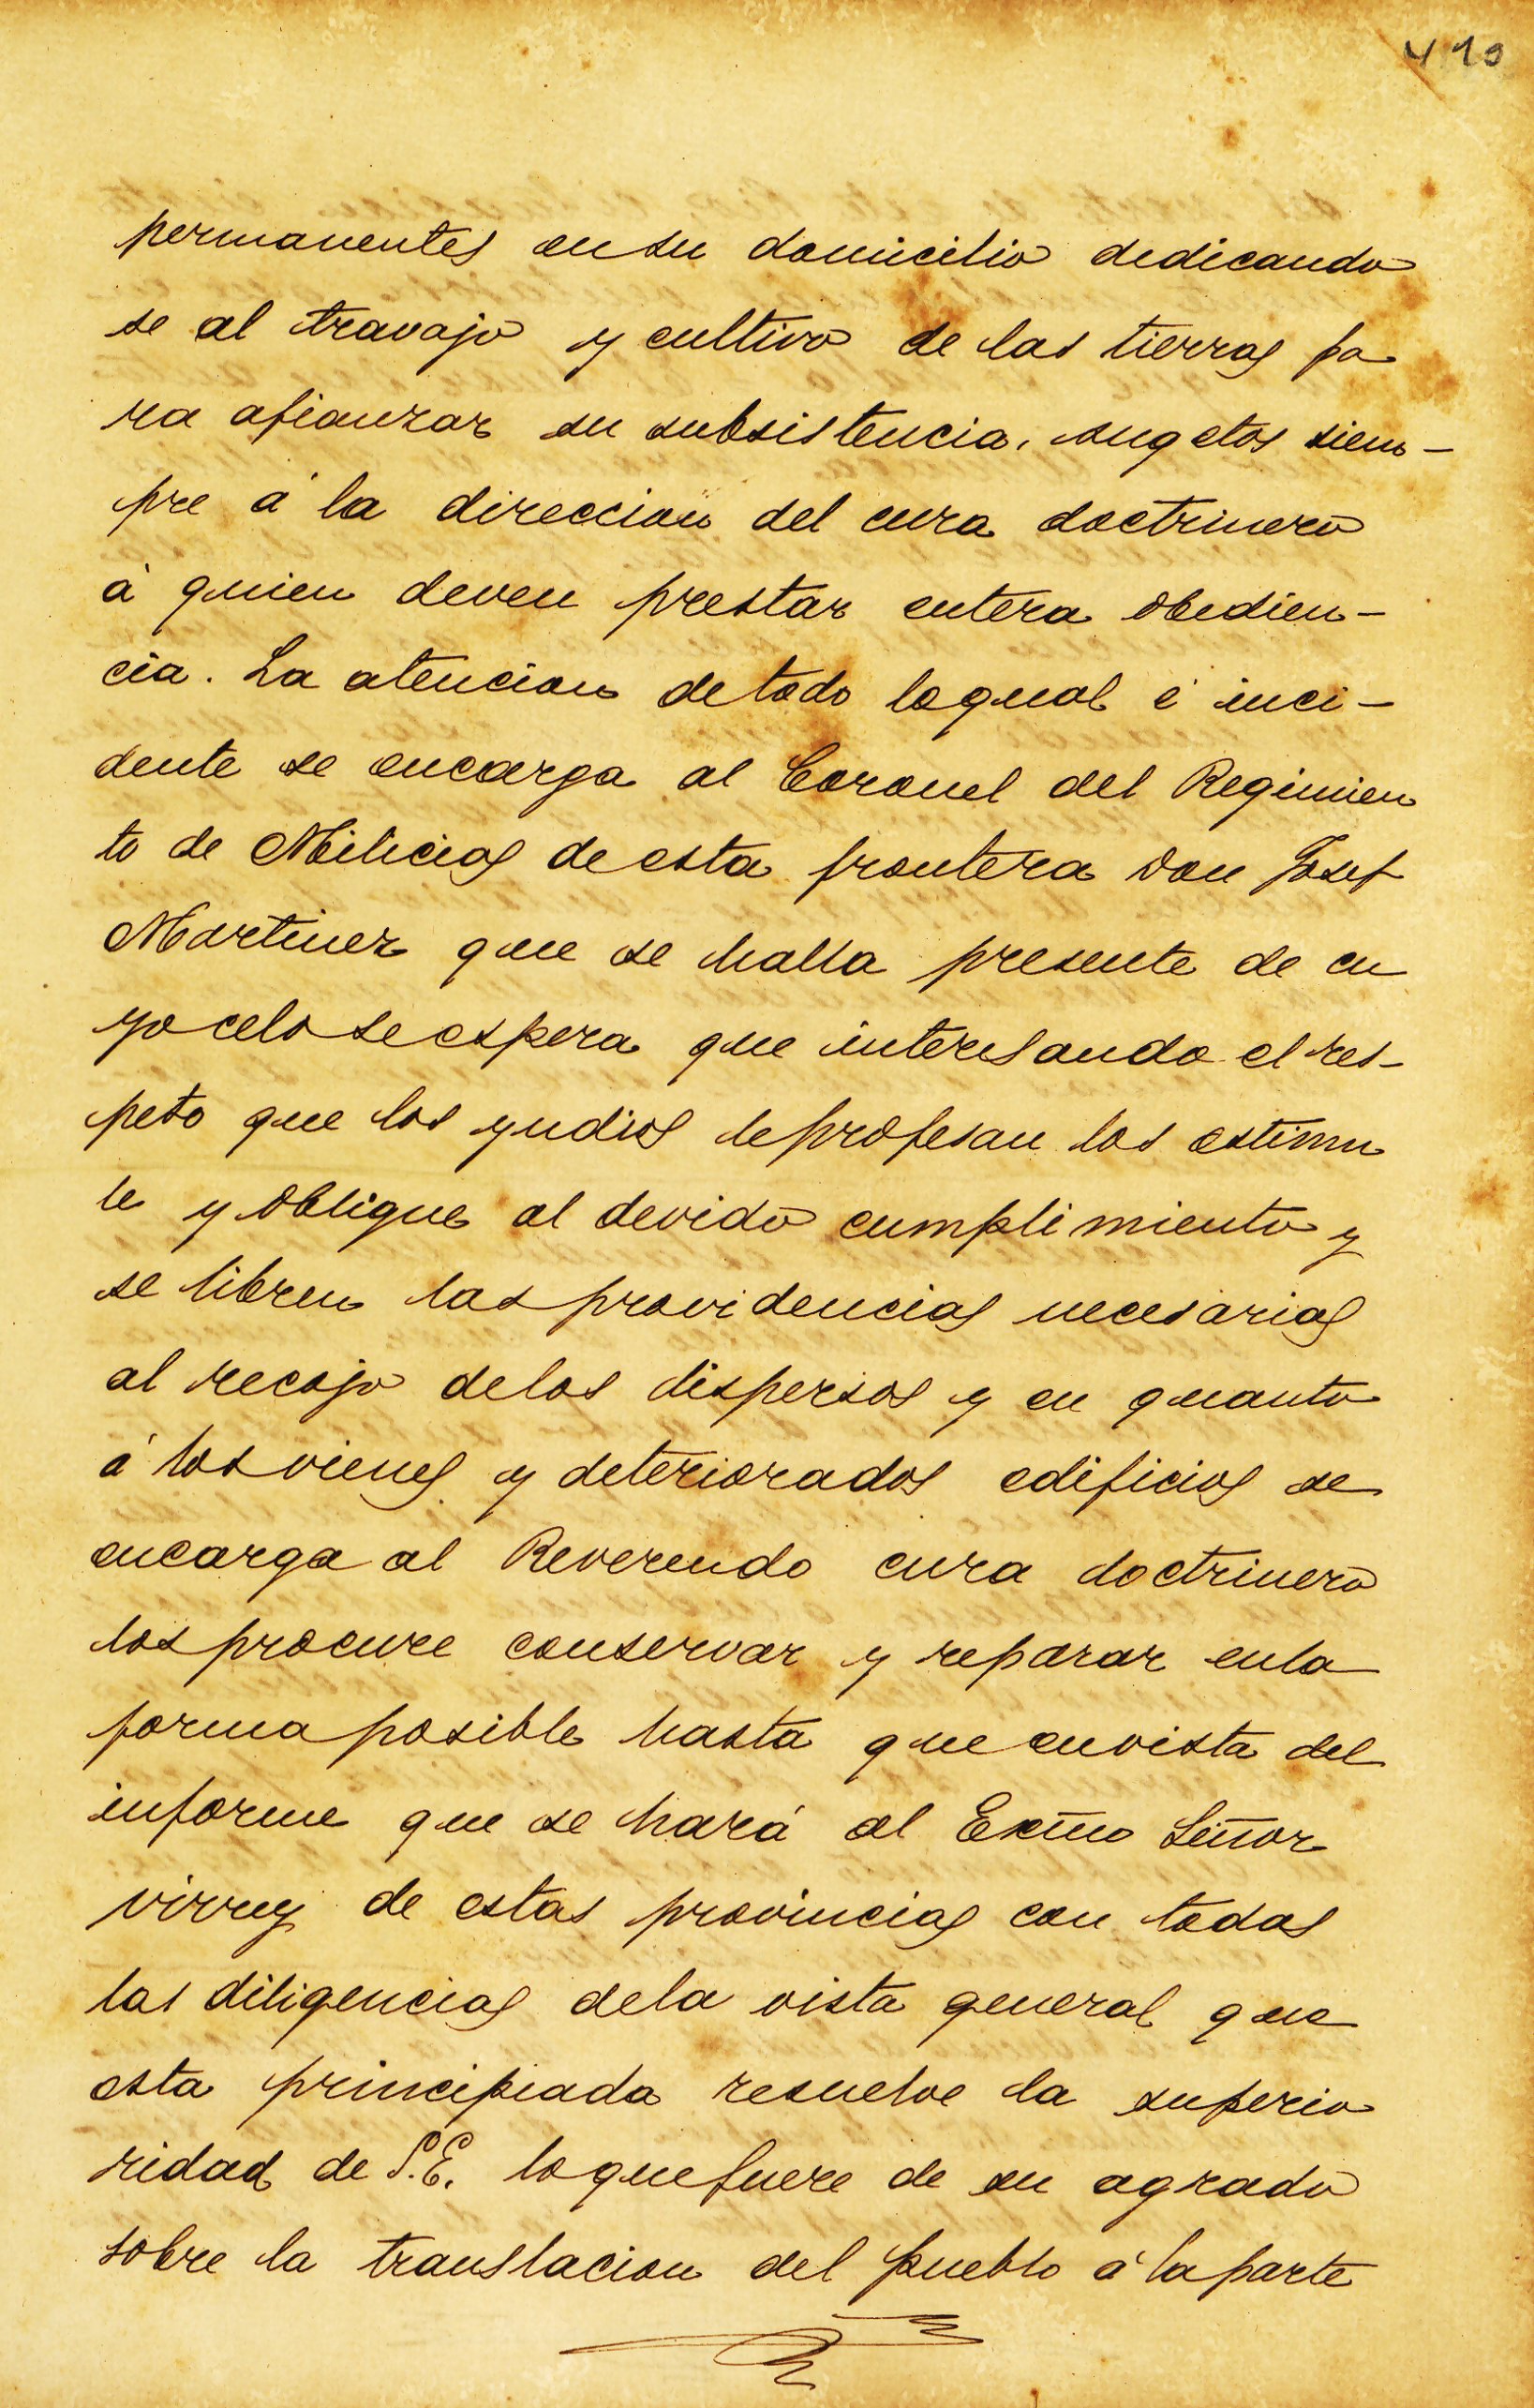 419
permanentes en su domicilio dedicando
se al travajo y cultivo de las tierras pa
ra afianzar su subsistencia, sugetos siem-
pre á la direccion del cura doctrinero
á quien deven prestar entera obedien-
cia. La atencion de todo loqual é inci-
dente se encarga al Coronel del Regimien
to de Milicias de esta frontera Don Josef
Martinez que se halla presente de cu
yo celo se espera que interesando el res-
peto que los yndios le profesan los estimu
le y obligue al devido cumplimiento y
se libren las providencias necesarias
al recojo delos dispersos y en quanto
á los vienes y deteriorados edificios se
encarga al Reverendo cura doctrinero
los procure conservar y reparar enla
forma posible hasta que en vista del
informe que se hará al Exmo Señor
virrey de estas provincias con todas
las diligencias dela vista general que
esta principiada resuelve la superio
ridad de S.E. lo que fuere de su agrado
sobre la translacion del pueblo á la parte